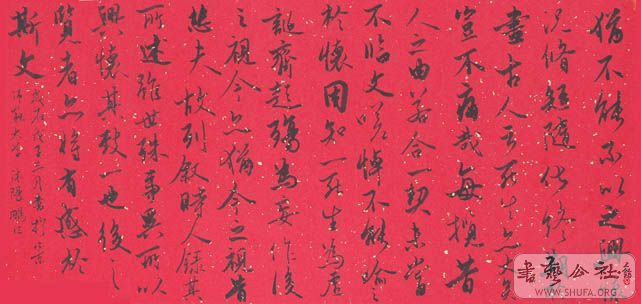 猶不能不以之興懷
況脩短隨化終期
盡古人云死生亦大矣
豈不痛哉每攬昔
人之由若合一契未嘗
不臨文嗟悼不能喻之
於懷固知一死生為虛
誕齊彭殤為妄作後
之視今亦猶今之視昔
悲夫故列敘時人錄其
所述雖世殊事異所以
興懷其致一也後之
覽者亦將有感於
斯文
書藝公社
WWW.SHUFA.ORG